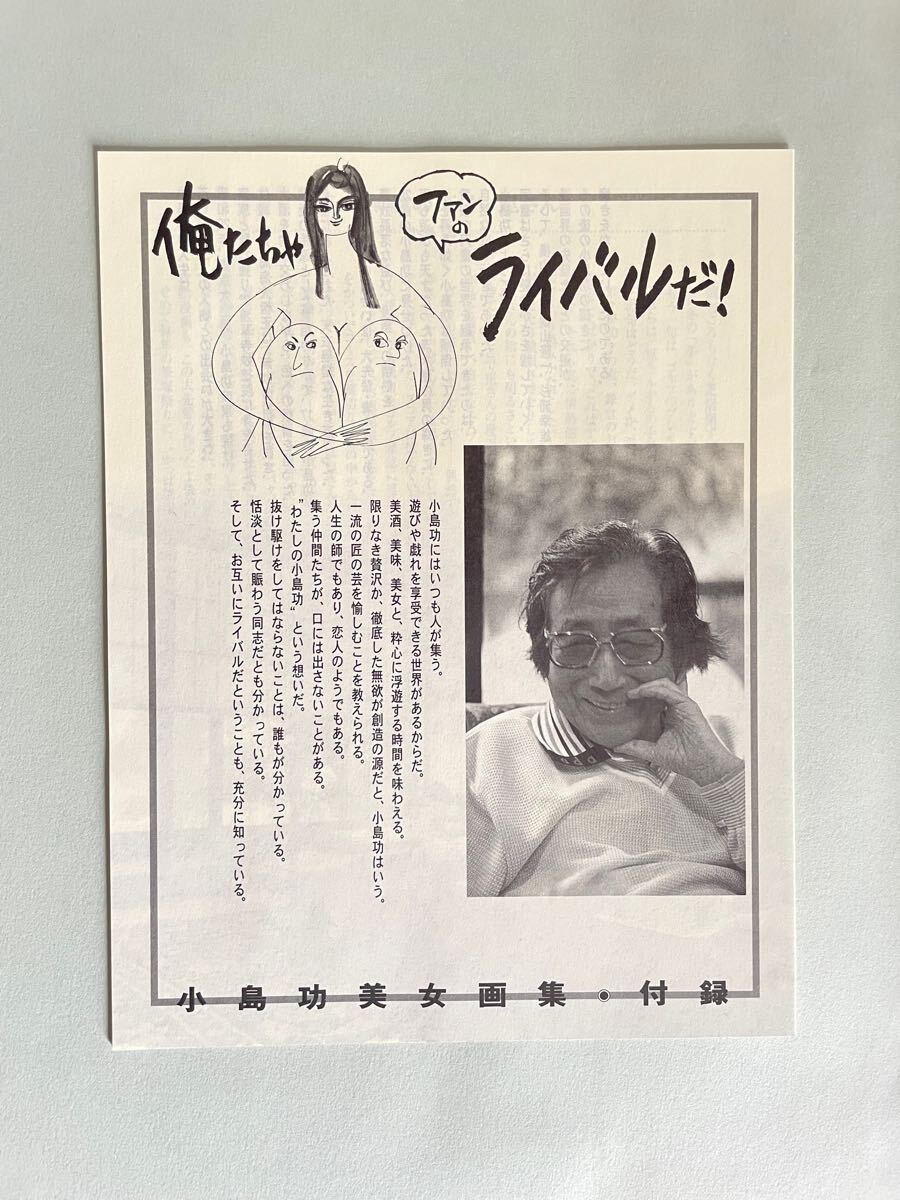 俺たちゃ
ファンの
ライバルだ!
小島功にはいつも人が集う。
遊びや戯れを享受できる世界があるからだ。
美酒、美味、美女と、粋心に浮遊する時間を味わえる。
限りなき贅沢か、徹底した無欲が創造の源だと、小島功はいう。
一流の匠の芸を愉しむことを教えられる。
人生の師でもあり、恋人のようでもある。
集う仲間たちが、口には出さないことがある。
“わたしの小島功“という想いだ。
抜け駆けをしてはならないことは、誰もが分かっている。
恬淡として賑わう同志だとも分かっている。
そして、お互いにライバルだということも、充分に知っている。
小島功美女画集・付録